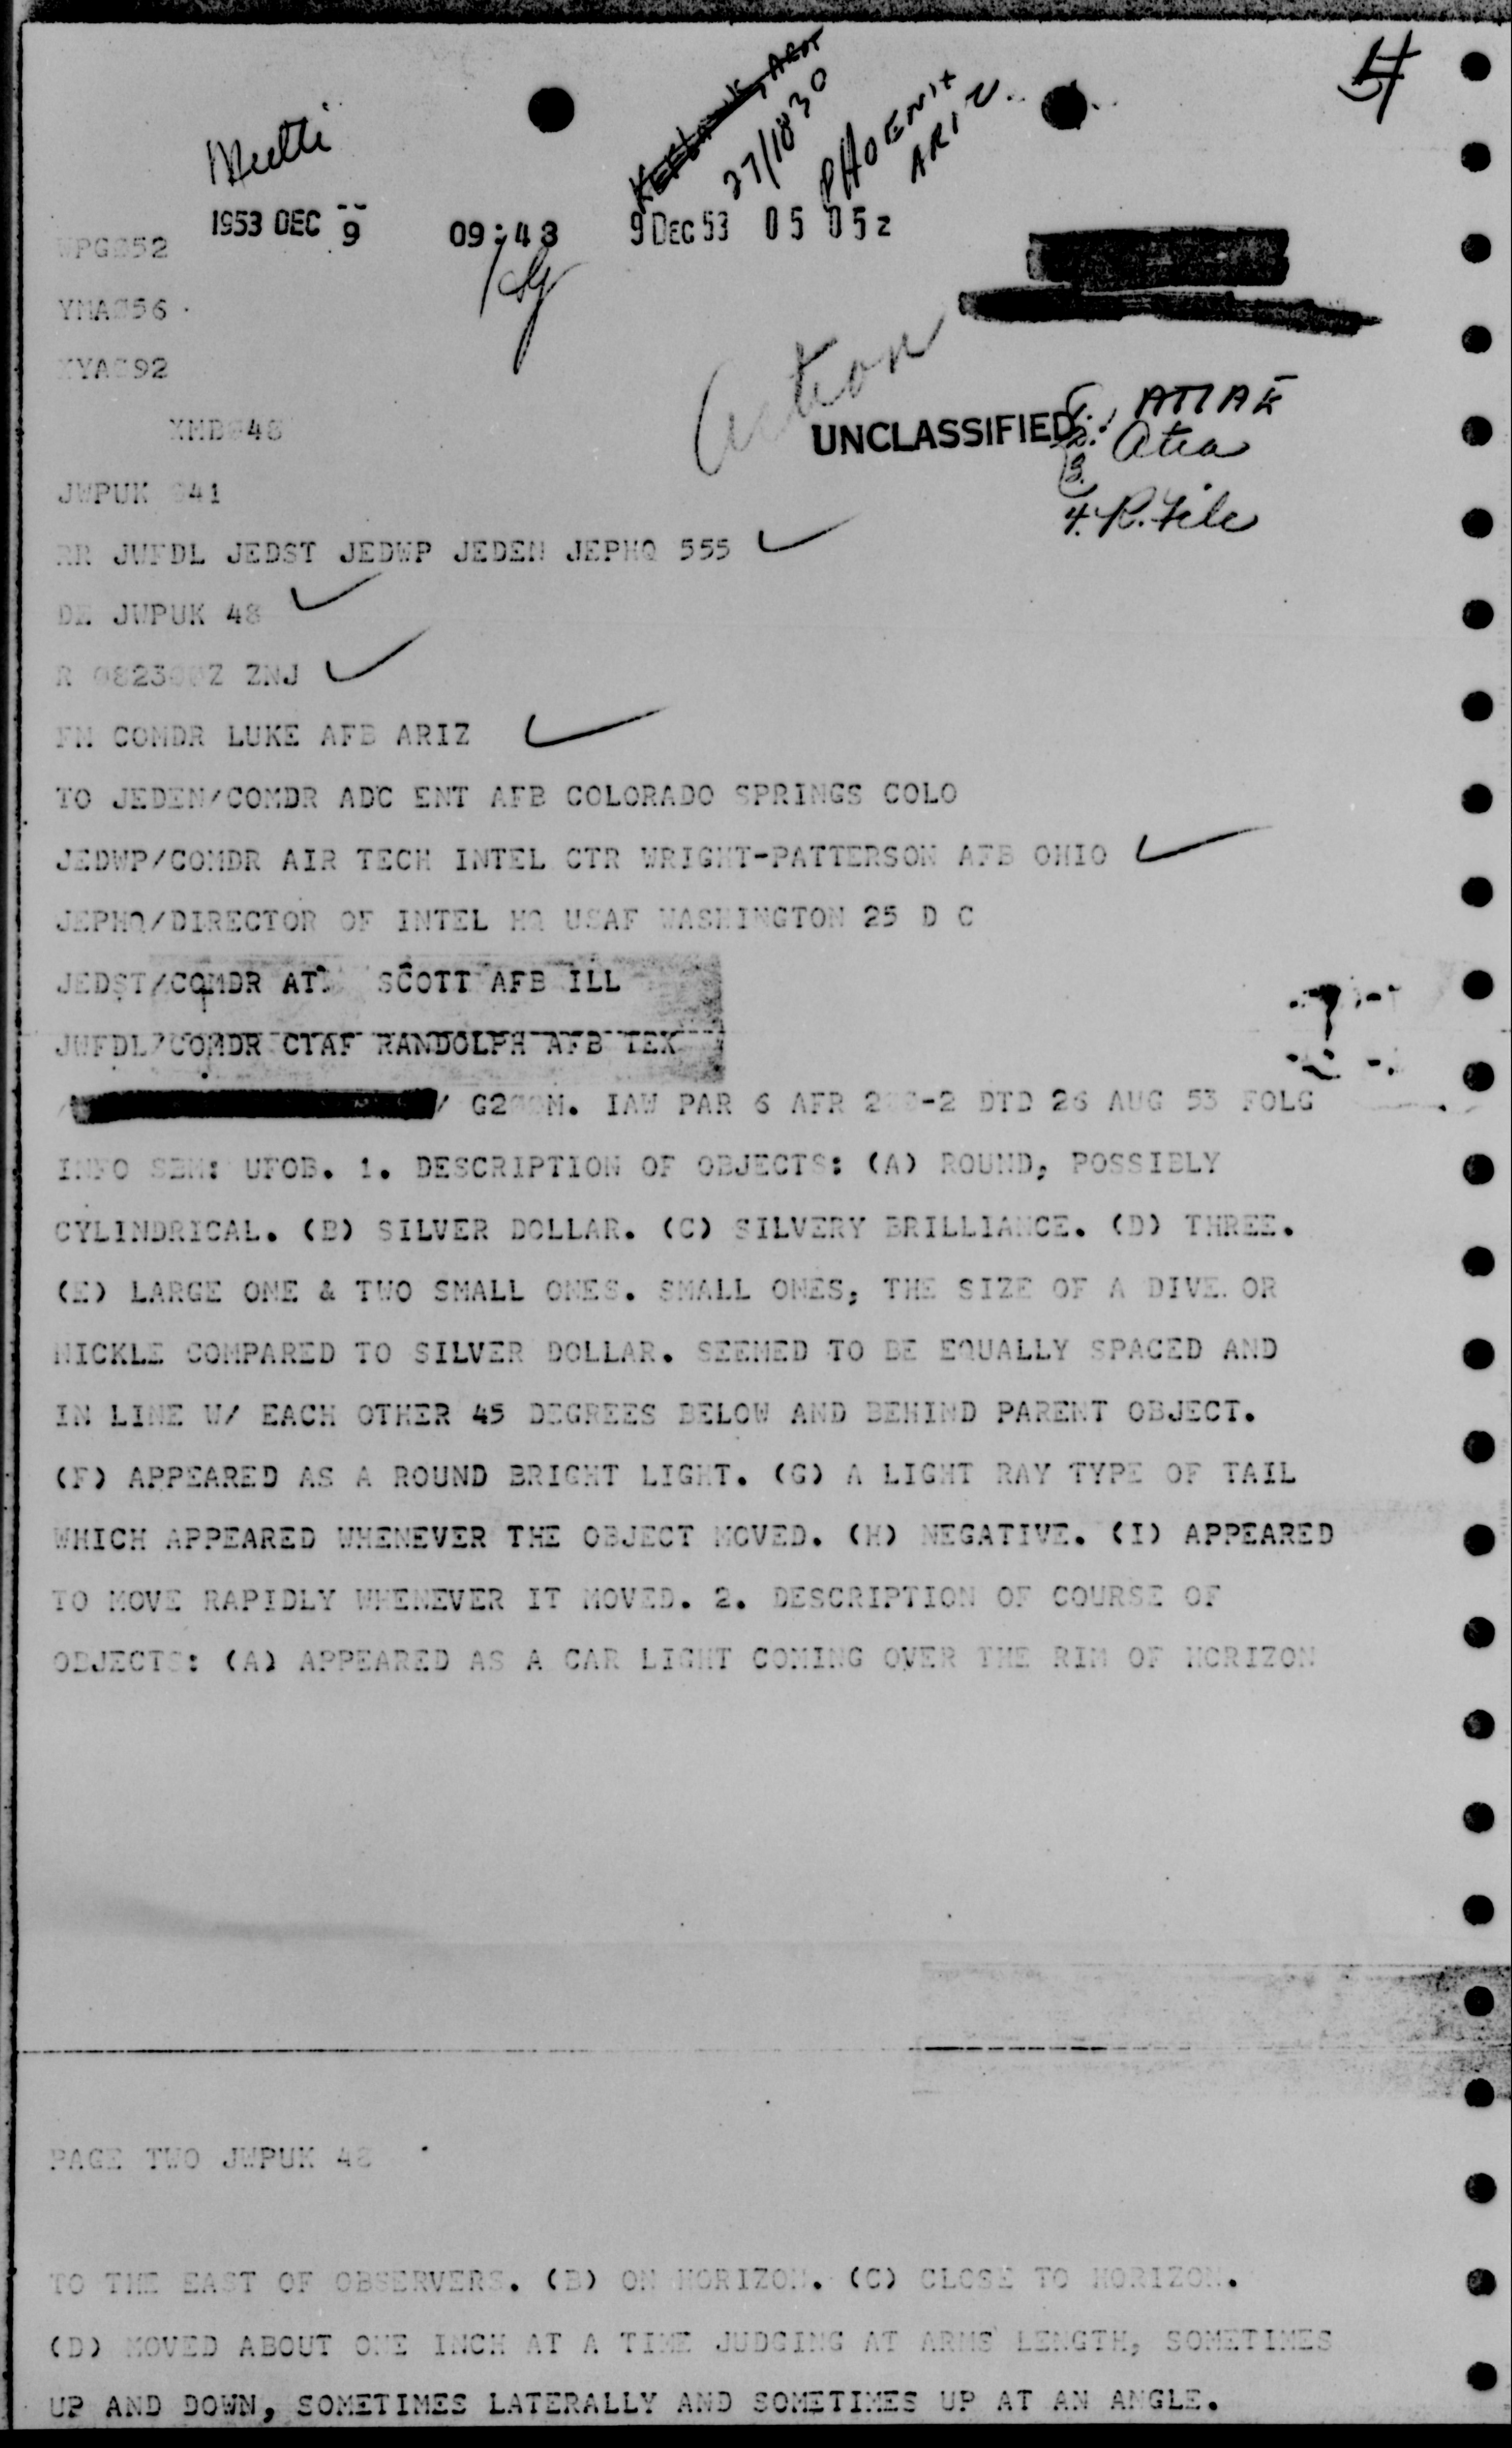 27/1830
PHOENIX
ARIZ.
1953 DEC 9 09:48 9 DEC 53 05 05z
WPG052
YMA056
YYA092
XMB048
Action
UNCLASSIFIED
1. ATIAE
2. Atia
3.
4. R. File
JWPUK 041
RR JWFDL JEDST JEDWP JEDEN JEPHQ 555
DE JWPUK 48
R 082300Z ZNJ
FM COMDR LUKE AFB ARIZ
TO JEDEN/COMDR ADC ENT AFB COLORADO SPRINGS COLO
JEDWP/COMDR AIR TECH INTEL CTR WRIGHT-PATTERSON AFB OHIO
JEPHQ/DIRECTOR OF INTEL HQ USAF WASHINGTON 25 D C
JEDST/COMDR SCOTT AFB ILL
JWFDL/COMDR CTAF RANDOLPH AFB TEX
/ M. IAW PAR 6 AFR 200-2 DTD 26 AUG 53 FOLG
INFO SBM: UFOB. 1. DESCRIPTION OF OBJECTS: (A) ROUND, POSSIBLY
CYLINDRICAL. (B) SILVER DOLLAR. (C) SILVERY BRILLIANCE. (D) THREE.
(E) LARGE ONE & TWO SMALL ONES. SMALL ONES, THE SIZE OF A OR
NICKLE COMPARED TO SILVER DOLLAR. SEEMED TO BE EQUALLY SPACED AND
IN LINE W/ EACH OTHER 45 DEGREES BELOW AND BEHIND PARENT OBJECT.
(F) APPEARED AS A ROUND BRIGHT LIGHT. (G) A LIGHT RAY TYPE OF TAIL
WHICH APPEARED WHENEVER THE OBJECT MOVED. (H) NEGATIVE. (I) APPEARED
TO MOVE RAPIDLY WHENEVER IT MOVED. 2. DESCRIPTION OF COURSE OF
OBJECTS: (A) APPEARED AS A CAR LIGHT COMING OVER THE RIM OF HORIZON
PAGE TWO JWPUK 48
TO THE EAST OF OBSERVERS. (B) ON HORIZON. (C) CLOSE TO HORIZON.
(D) MOVED ABOUT ONE INCH AT A TIME JUDGING AT ARMS LENGTH, SOMETIMES
UP AND DOWN, SOMETIMES LATERALLY AND SOMETIMES UP AT AN ANGLE.